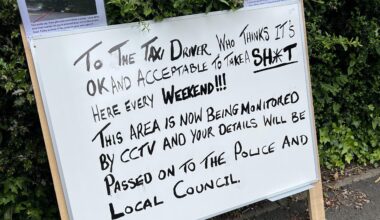 To The Taxi Driver Who Thinks It's
OK And Acceptable To Take A SH*T
Here Every Weekend!!!
This Area Is Now Being Monitored
By CCTV And Your Details Will Be
Passed On To The Police And
Local Council.